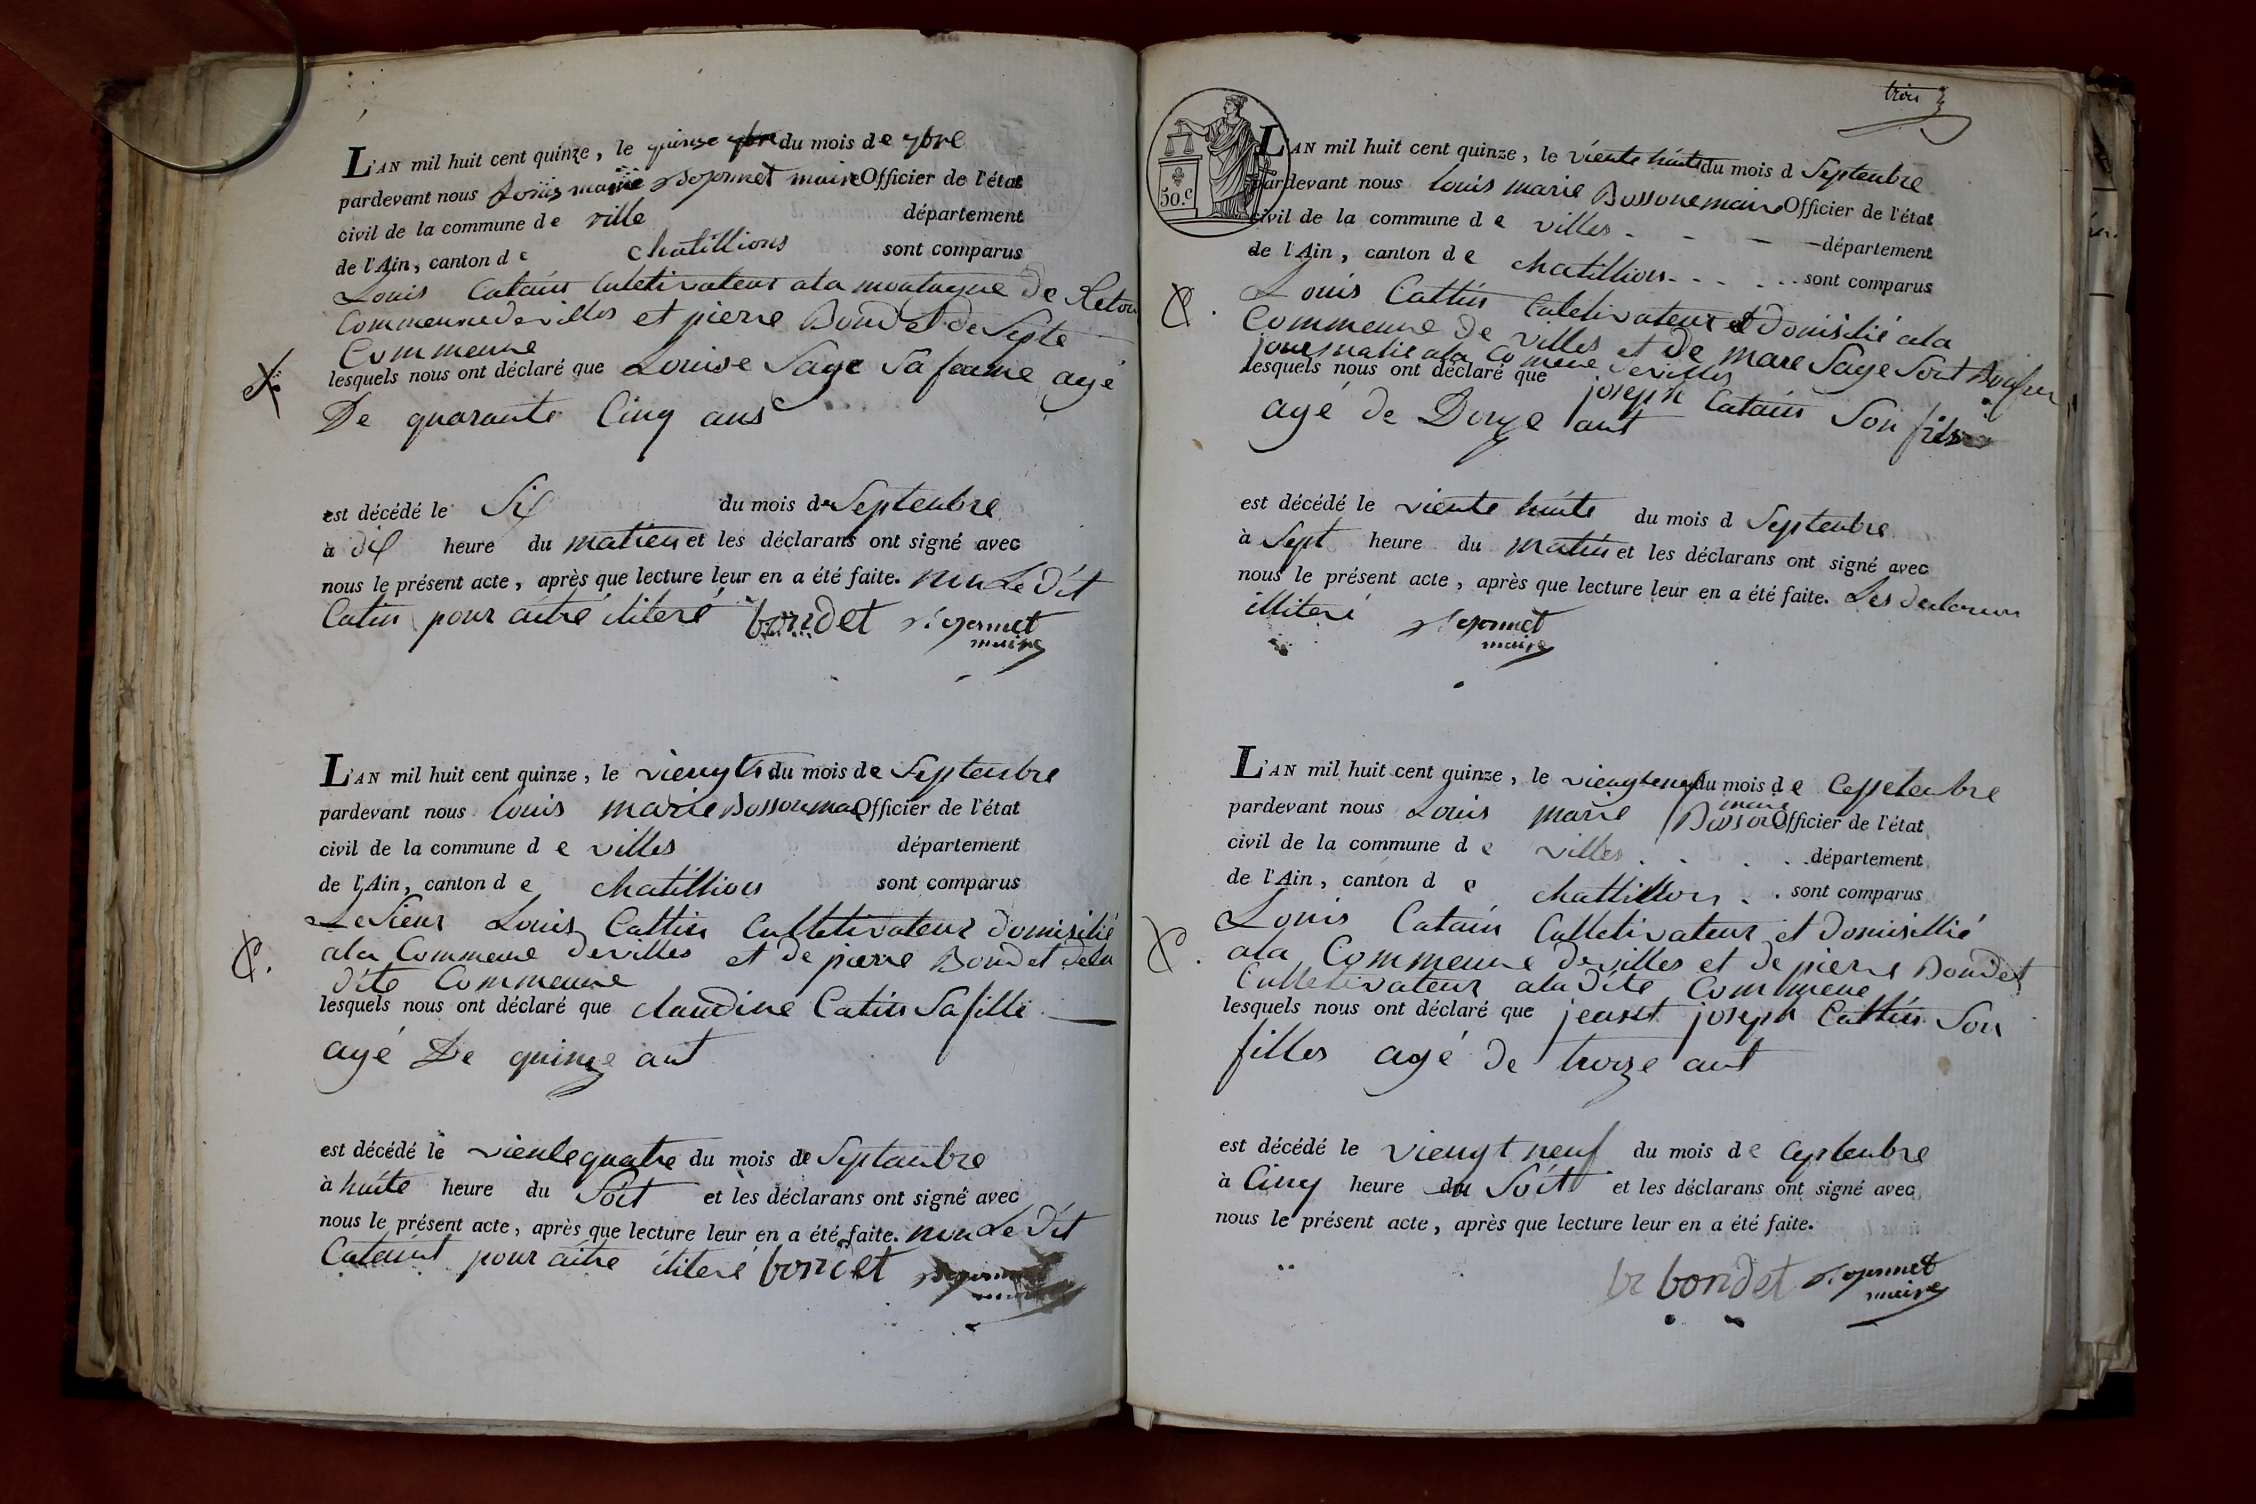 L'AN mil huit cent quinze, le quinze du mois de 7bre
pardevant nous Louis marie maire Officier de l'état
civil de la commune de ville département
de l'Ain, canton de chatillions sont comparus
Louis Catain Culetivateur ala montagne de Retor
Commeune de villes et pierre Boudet de Septe
Commeune
lesquels nous ont déclaré que Louise Sage Sa famme agé
De quarante Cinq ans
est décédé le Six du mois de Septenbre
à dix heure du matien et les déclarans ont signé avec
nous le présent acte, après que lecture leur en a été faite. non Le dit
Catin pour aitre iliteré bondet
maire
L'AN mil huit cent quinze, le viengts du mois de Septenbre
pardevant nous Louis marie Bossonma Officier de l'état
civil de la commune de villes département
de l'Ain, canton de chatillion sont comparus
Le Sieur Louis Cattin Culletivateur domisilié
ala Commeune de villes et de pierre Boudet dela
dite Commeune
lesquels nous ont déclaré que claudine Catin Sa fille
agé De quinze ant
est décédé le viente quatre du mois de Septanbre
à huite heure du Soit et les déclarans ont signé avec
nous le présent acte, après que lecture leur en a été faite. non Le Dit
Cataint pour aitre iliteré bondet
trois 3
50.c
L'AN mil huit cent quinze, le viente huite du mois d Septenbre
pardevant nous Louis marie Bossone maire Officier de l'état
civil de la commune de villes - - - département
de l'Ain, canton de chatillion - - - sont comparus
Louis Cattin Culetivateur et domisilié ala
Commeune de villes et de mare Sage Sont Boufrer
journalié ala Comeune de villes
lesquels nous ont déclaré que joseph Catain Son fils
agé de Douze ant
est décédé le viente huite du mois d Septenbre
à Sept heure du matin et les déclarans ont signé avec
nous le présent acte, après que lecture leur en a été faite. Les declaran
illiteré
maire
L'AN mil huit cent quinze, le viengt neuf du mois de Cepetenbre
maire
pardevant nous Louis marie Bosson Officier de l'état
civil de la commune de villes département
de l'Ain, canton de chattillon sont comparus
Louis Catain Culletivateur et domisillié
ala Commeune de villes et de pierre Boudet
Culletivateur ala dite Commeune
lesquels nous ont déclaré que jeanst joseph Cattin Son
filles agé de treize ant
est décédé le viengt neuf du mois de Ceptenbre
à Cinq heure du Soit et les déclarans ont signé avec
nous le présent acte, après que lecture leur en a été faite.
bondet
maire